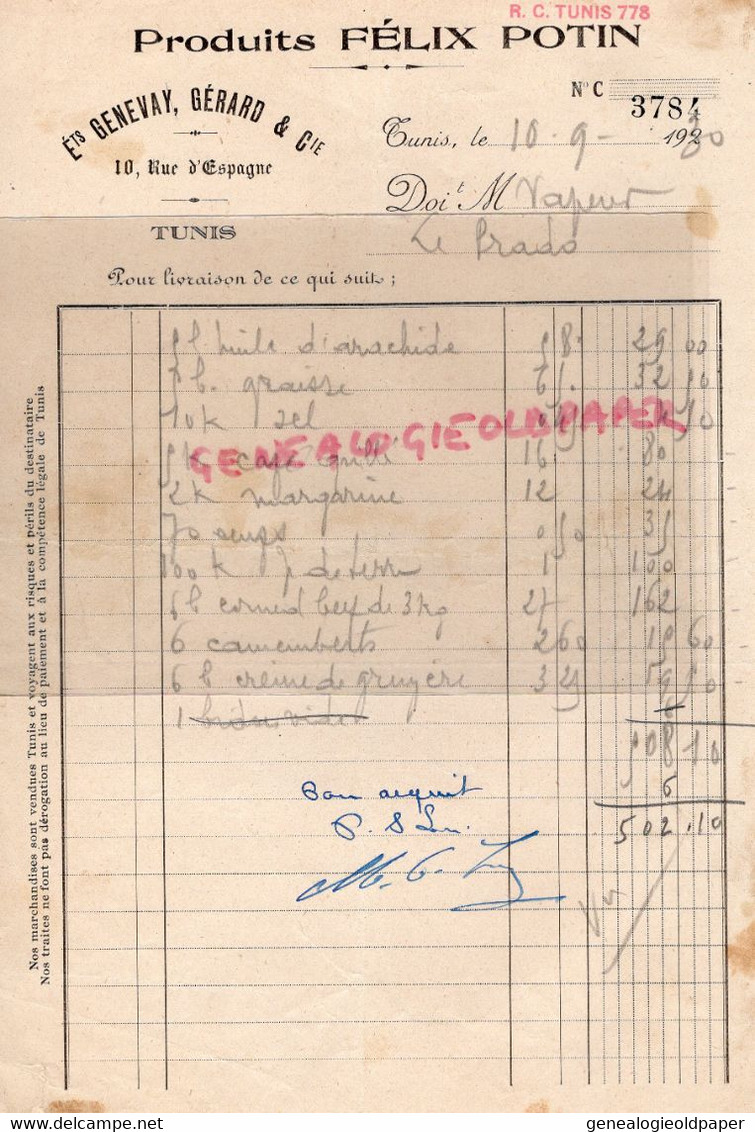 R. C. TUNIS 778
Produits FÉLIX POTIN
Nº C 3784
Éts GENEVAY, GÉRARD & Cie
10, Rue d'Espagne
TUNIS
Tunis, le 10-9- 1930
Doit M Vapeur
Le Prado
Pour livraison de ce qui suit ;
5 l huile d'arachide 5 8. 29 00
5 b. graisse 6 5. 32 50
10k sel 10
5k café grillé 16 80
2k margarine 12 24
70 oeufs 0 50 35
100k p de terre 1 100
6 b corned beef de 3 kg 27 162
6 camemberts 2 60 15 60
6 b crème de gruyère 3 25 19 50
1 bidon vide 6
508 10
6
502.10
Pour acquit
Nos marchandises sont vendues Tunis et voyagent aux risques et périls du destinataire
Nos traites ne font pas dérogation au lieu de paiement et à la compétence légale de Tunis
GENEALOGIEOLDPAPER
delcampe.net
genealogieoldpaper